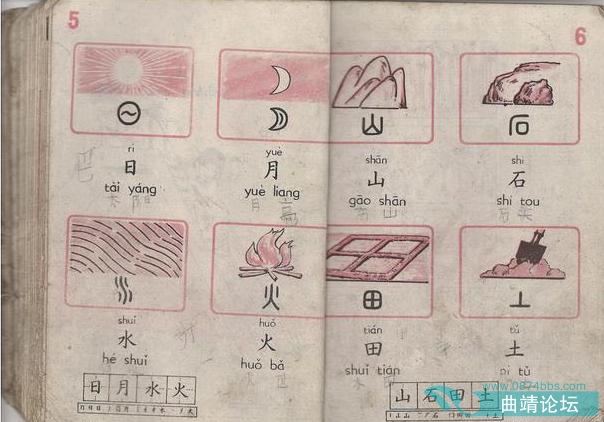 5
rì
日
tài yáng
yuè
月
yuè liang
shuǐ
水
hé shuǐ
huǒ
火
huǒ bǎ
日 月 水 火
6
shān
山
gāo shān
shí
石
shí tou
tián
田
shuǐ tián
tǔ
土
ní tǔ
山 石 田 土
www.0874bbs.com
曲靖论坛